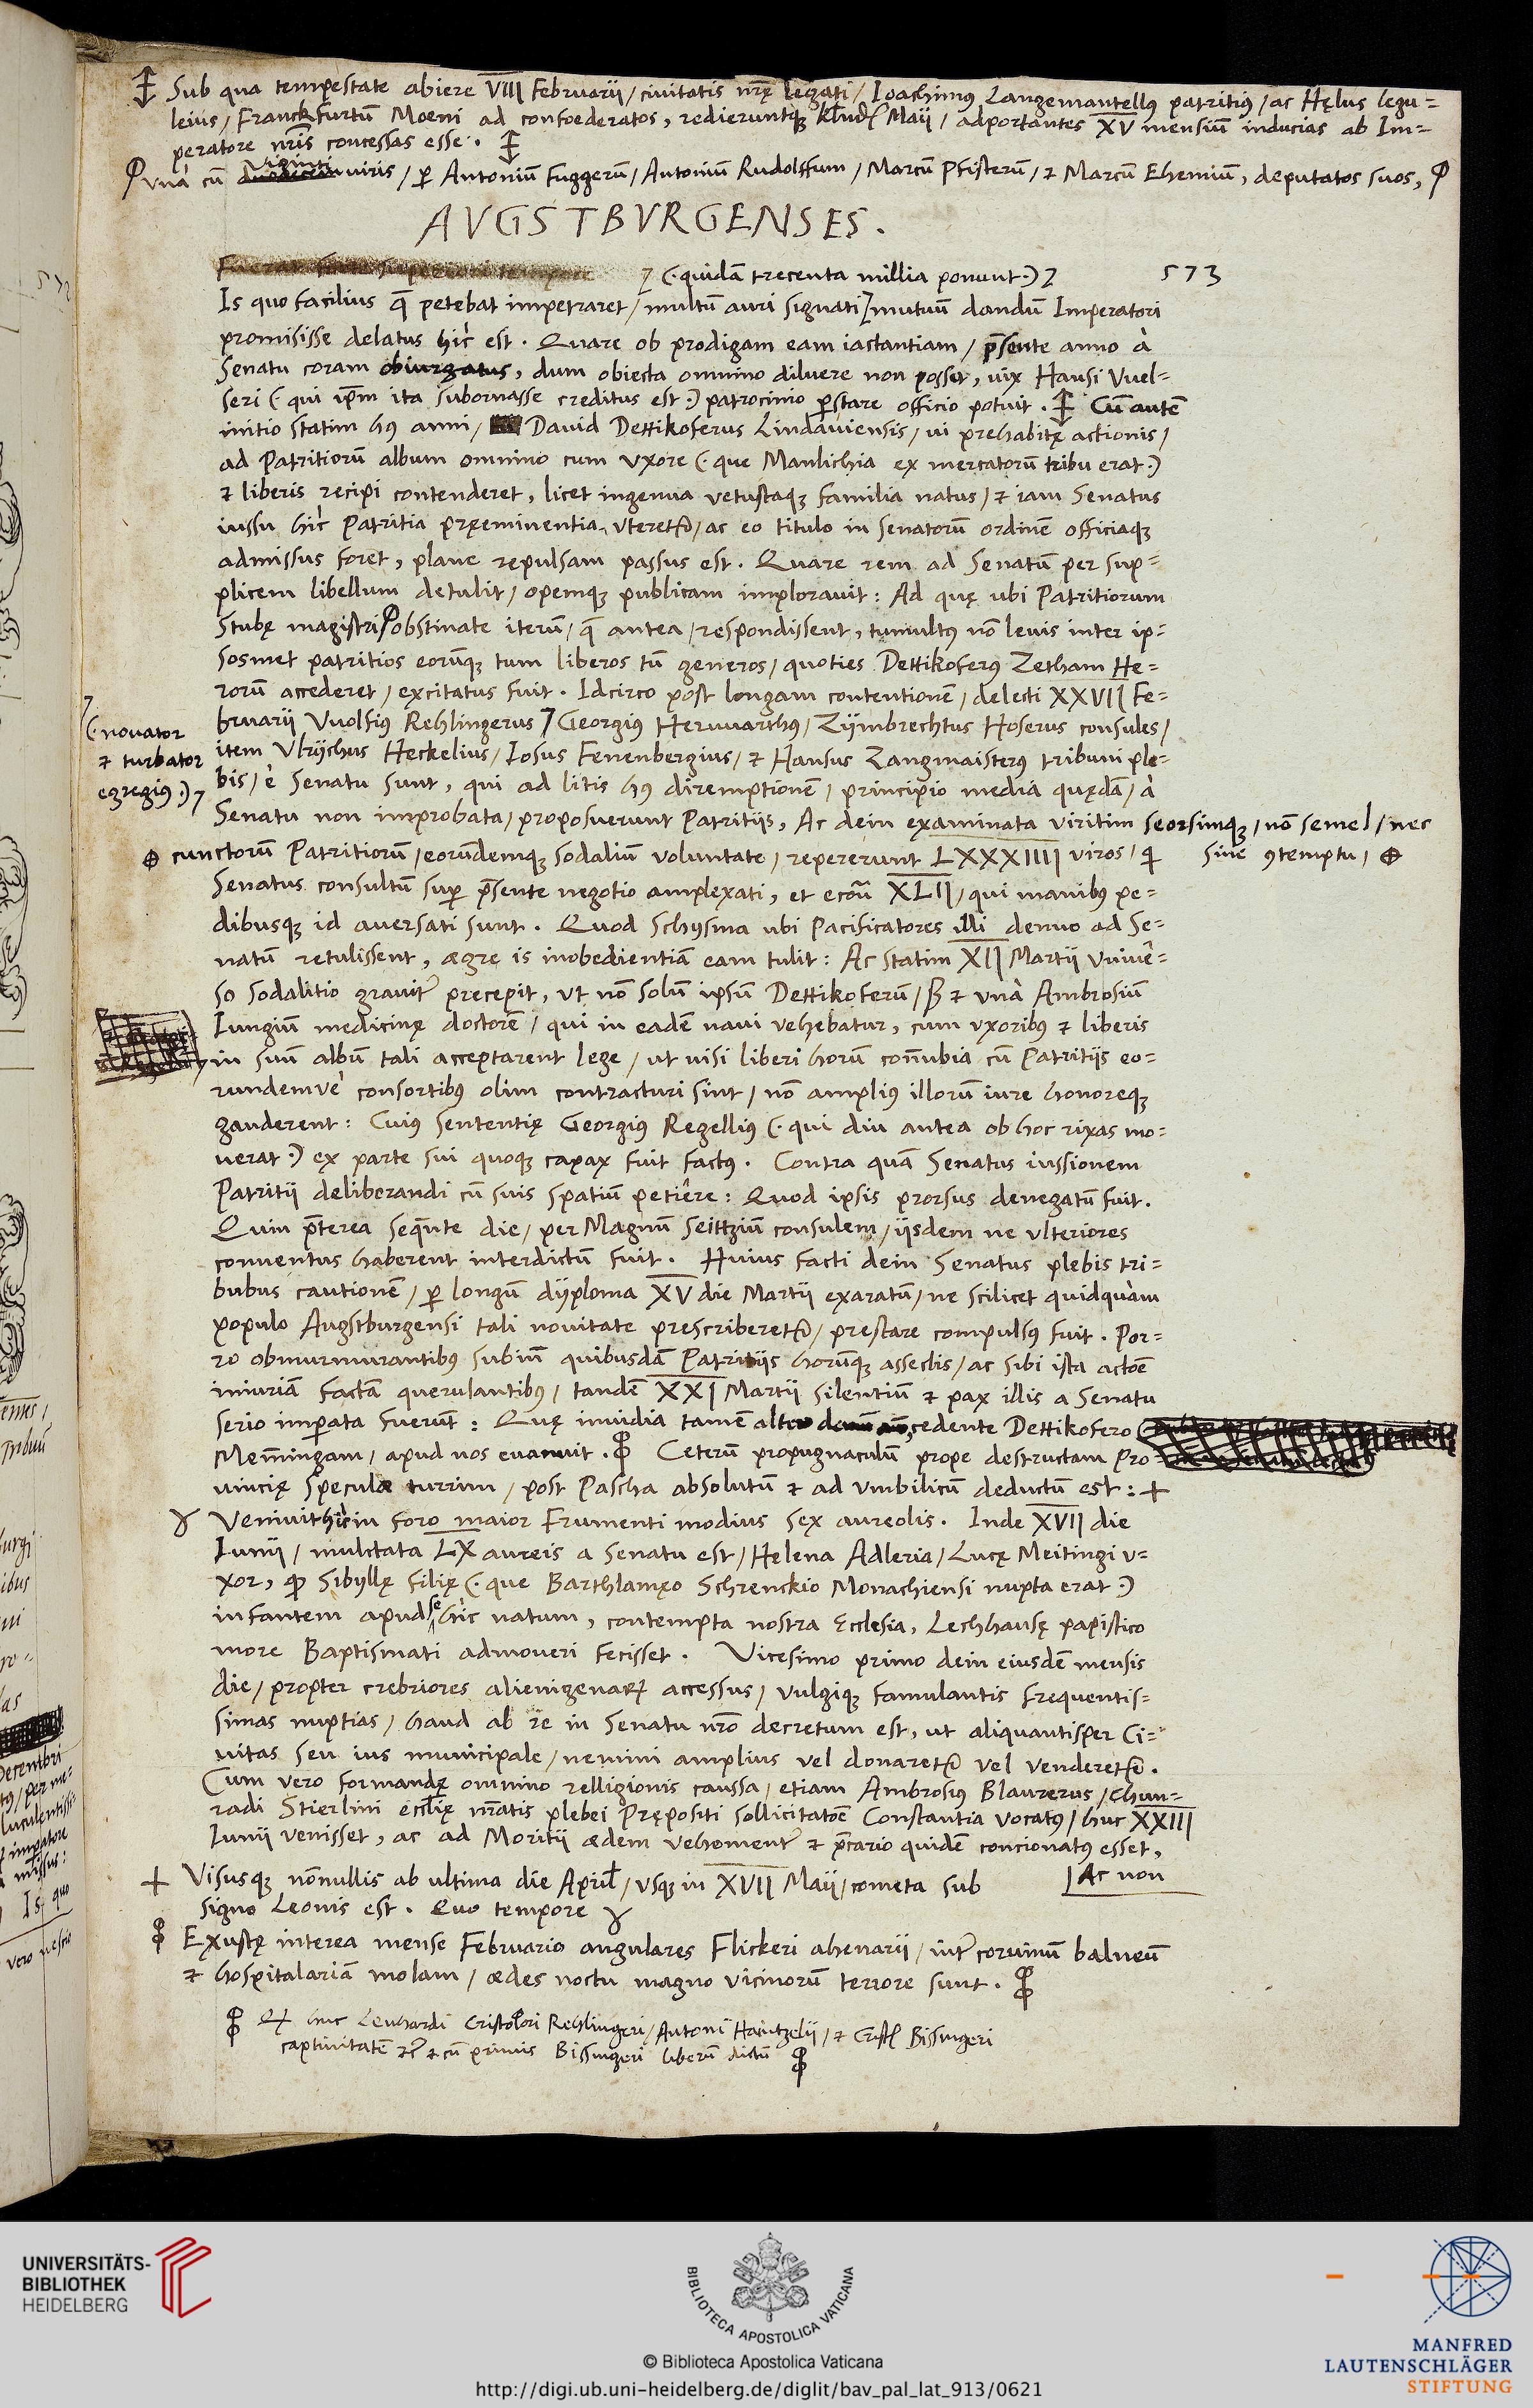 Sub qua tempestate abiere VIII Februarii / ciuitatis nrę legati / Ioachimus Langemantellus patritius / ac Hęlus legu=
leius / Franckfurtũ Moeni ad confoederatos, redieruntq; Maii / adportantes XV mensiũ inducias ab Im=
peratore nris concessas esse.
Vna cũ Viginti viris / p Antoniũ Fuggerũ / Antoniũ Rudolffum / Marcũ Pfisterũ / et Marcũ Ehemiũ, deputatos suos,
AVGSTBVRGENSES.
(. quidã trecenta millia ponunt .) 573
Is quo facilius q̃ petebat impetraret / multũ auri signati mutuũ dandũ Imperatori
promisisse delatus hìc est. Quare ob prodigam eam iactantiam / pñsente anno à
Senatu coram obiurgatus, dum obiecta omnino diluere non posset, uix Hansi Vuel=
seri (. qui ipm ita subornasse creditus est .) patrocinio pstare officio potuit. Cũ autẽ
initio statim hꝰ anni / David Dettikoferus Lindauiensis / ui prehabitę actionis /
ad Patritiorũ album omnino cum vxore (. que Manlichia ex mercatorũ tribu erat .)
et liberis recipi contenderet, licet ingenua vetustaq; familia natus / et iam Senatus
iussu hìc Patritia pręeminentia vteretr / ac eo titulo in senatorũ ordinẽ officiaq;
admissus foret, plane repulsam passus est. Quare rem ad Senatũ per sup=
plicem libellum detulit / opemq; publicam implorauit: Ad quę ubi Patritiorum
Stubę magistri obstinate iterũ / q̃ antea / respondissent, tumultꝰ nõ leuis inter ip=
sosmet patritios eorũq; tum liberos tũ generos / quoties Dettikoferꝰ Zetham He=
rorũ accederet / excitatus fuit. Idcirco post longam contentionẽ / delecti XXVII Fe=
bruarii Vuolfius Rehlingerus Georgius Heruuarthus / Zymbrechtus Hoserus consules /
(. nouator
et turbator
egregiꝰ .)
item Vlrychus Heckelius / Iosus Fenenbergius / et Hansus Zangmaisterꝰ tribuni ple=
bis / è Senatu sunt, qui ad litis hꝰ diremptionẽ / principio media quędã / à
Senatu non improbata / proposuerunt Patritiis, Ac dein examinata viritim seorsimq; / nõ semel / nec
sine ꝯtemptu /
cunctorũ Patritiorũ / eorũdemq; sodaliũ voluntate / repererunt LXXXIIII viros / qi
Senatus consultũ sup pñsente negotio amplexati, et ecoũ XLII / qui manibꝰ pe=
dibusq; id auersati sunt. Quod Schysma ubi Pacificatores illi denuo ad Se=
natũ retulissent, aegre is inobedientiã eam tulit: Ac statim XII Martii Vniue=
so sodalitio grauitr precepit, ut nõ solũ ipsũ Dettikoferũ / et vnà Ambrosiũ
Iungiũ medicinę doctorẽ / qui in eadẽ naui vehebatur, cum vxoribꝰ et liberis
in suũ albũ tali acceptarent lege / ut nisi liberi horũ connubia cũ Patritiis eo=
rundemvè consortibꝰ olim contracturi sint / nõ ampliꝰ illorũ iure honoreq;
gauderent: Cuiꝰ sententię Georgius Regelliꝰ (. qui diu antea ob hoc rixas mo=
uerat .) ex parte sui quoq; capax fuit factꝰ. Contra quã Senatus iussionem
Patritii deliberandi cũ suis spatiũ petiêre: Quod ipsis prorsus denegatũ fuit.
Quin pterea sequte die / per Magnũ Seittziũ consulem / iisdem ne vlteriores
conventus haberent interdictũ fuit. Huius facti dein Senatus plebis tri=
bubus cautionẽ / p longũ dyploma XV die Martii exaratũ / ne scilicet quidquàm
populo Augstburgensi tali nouitate prescriberetr / prestare compulsꝰ fuit. Por=
ro obmurmurantibꝰ subiũ quibusdã Patritiis horũq; asseclis / ac sibi ista actõe
iniuriã factã querulantibꝰ / tandẽ XXI Martii silentiũ et pax illis a Senatu
serio imperata fuerũt: Quę inuidia tamẽ cedente Dettikofero
Memmingam / apud nos euanuit. Ceterũ propugnaculũ prope destructam Pro=
uincię speculæ turrim / post Pascha absolutũ et ad vmbilicũ deductũ est: +
Venivit hìc in foro maior frumenti modius sex aureolis. Inde XVII die
Iunii / mulctata LX aureis a Senatu est / Helena Adleria / Lucę Meitingi v=
xor, qp Sibyllę filię (. que Barthlamęo Schrenckio Monachiensi nupta erat .)
infantem apud se hìc natum, contempta nostra Ecclesia, Lechhausę papistico
more Baptismati admoueri fecisset. Vicesimo primo dein eiusdẽ mensis
die / propter crebriores alienigenarꝝ accessus / vulgiq; famulantis frequentis=
simas nuptias / haud ab re in Senatu nrõ decretum est, ut aliquantisper Ci=
uitas seu ius municipale / nemini amplius vel donaretr vel venderetr.
Cum vero formandę omnino relligionis caussa / etiam Ambrosiꝰ Blaurerus / Chun=
radi Stierlini plebei Prępositi sollicitatõe Constantia vocatꝰ / huc XXIII
Iunii venisset, ac ad Moritii ædem vehementr et pcario quidẽ concionatꝰ esset,
Ac non
+ Visusq; nõnullis ab ultima die April / vsq; in XVII Maii / cometa sub
signo Leonis est. Quo tempore
Exustę interea mense Februario angulares Flickeri ahenarii / intr coruinũ balneũ
et hospitalariã molam / ædes noctu magno vicinorũ terrore sunt.
huc Lenhardi Cristofori Rechlingeri / Antoni Haintzelii / et Bissingeri
captiuitatẽ et cũ primis Bissingeri liberũ dictũ
UNIVERSITÄTS-
BIBLIOTHEK
HEIDELBERG
BIBLIOTECA APOSTOLICA VATICANA
© Biblioteca Apostolica Vaticana
http://digi.ub.uni-heidelberg.de/diglit/bav_pal_lat_913/0621
MANFRED
LAUTENSCHLÄGER
STIFTUNG